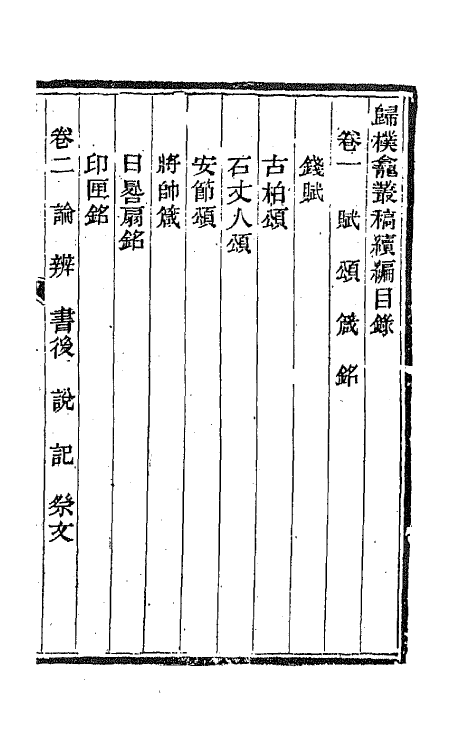 歸樸龕叢稿續編目錄
卷一 賦 頌 箴 銘
錢賦
古柏頌
石丈人頌
安節頌
將帥箴
日晷扇銘
印匣銘
卷二 論 辨 書後 說 記 祭文